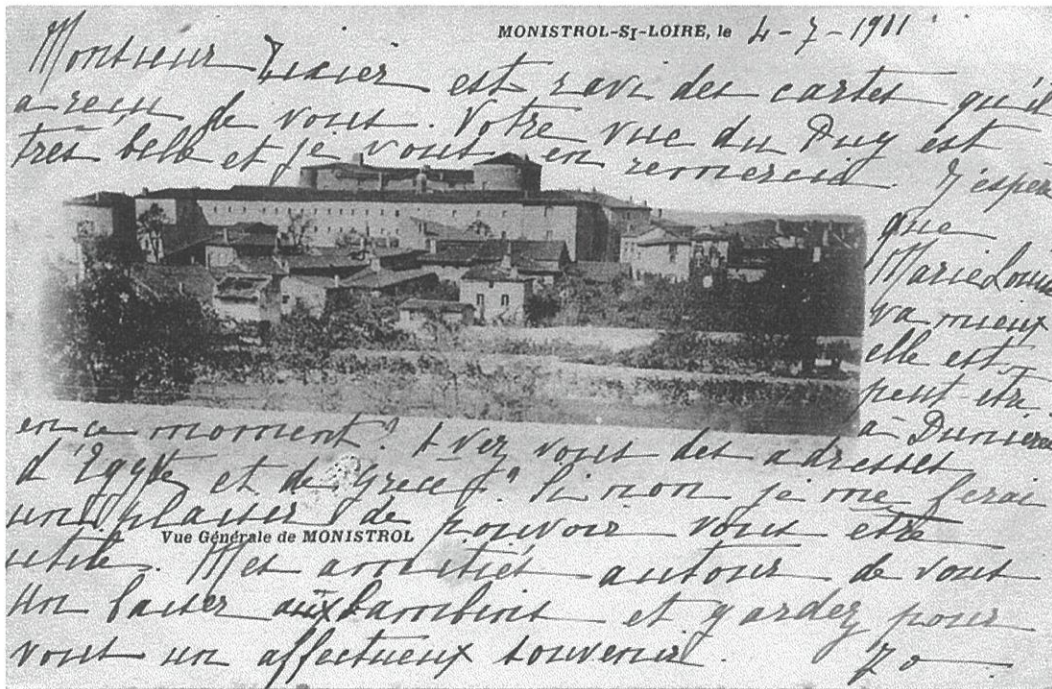 MONISTROL-SI-LOIRE, le 4-7-1901
Monsieur Tixier est ravi des cartes qu'il
a reçu de vous. Votre vue du Puy est
très belle et je vous en remercie. J'espère
que
Marie Louise
va mieux
elle est
peut être
en ce moment? à Dunières
Avez vous des adresses
d'Egypte et de Grèce? Si non je me ferai
un plaisir de pouvoir vous être
Vue Générale de MONISTROL
utile. Mes amitiés autour de vous
Un baiser aux bambins et gardez pour
vous un affectueux souvenir.